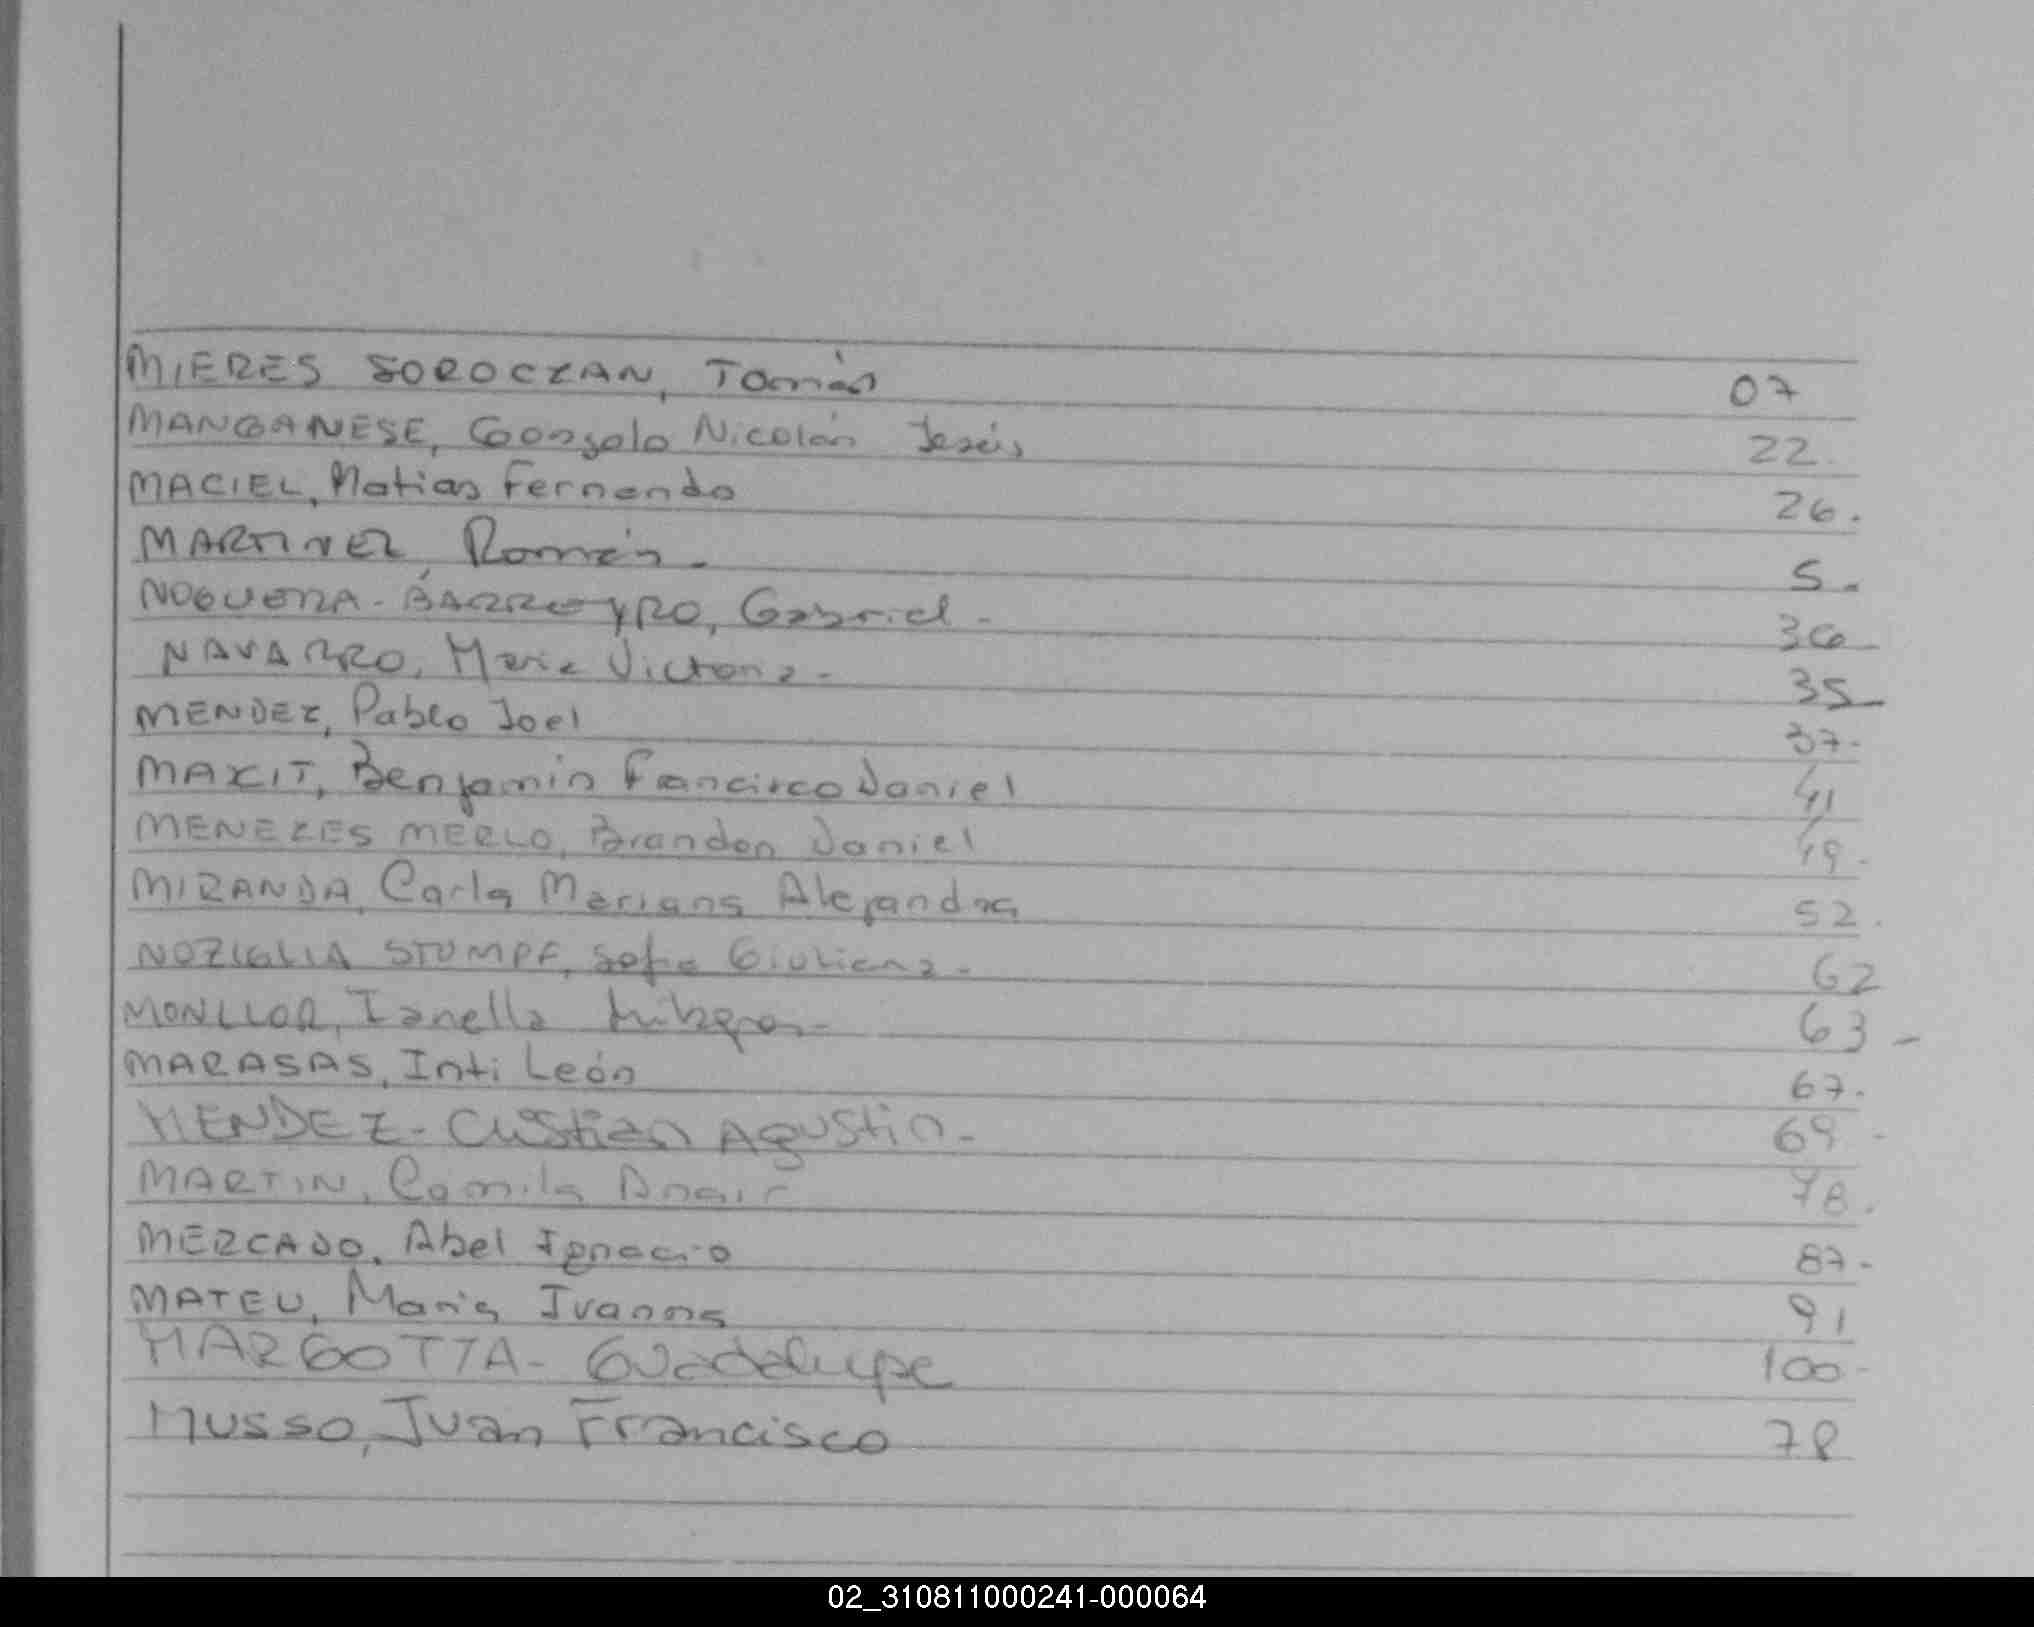 MIERES SOROCZAN, Tomás 07
MANGANESE, Gonzalo Nicolás Jesús 22.
MACIEL, Matias Fernando 26.
MARTINEZ, Román. 5.
NOGUERA-BARREYRO, Gabriel. 36
NAVARRO, Maria Victoria. 35
MENDEZ, Pablo Joel 37.
MAXIT, Benjamin Francisco Daniel 41
MENEZES MERLO, Brandon Daniel 49.
MIRANDA, Carla Mariana Alejandra 52.
NOZIGLIA STUMPF, Sofia Giuliana. 62
MONLLOR, Ianella Milagros. 63
MARASAS, Inti León 67.
MENDEZ- Cristian Agustin- 69
MARTIN, Camila Anair 78.
MERCADO, Abel Ignacio 87.
MATEU, Maria Ivanna 91
MARGOTTA- Guadalupe 100
MUSSO, Juan Francisco 78
02_310811000241-000064